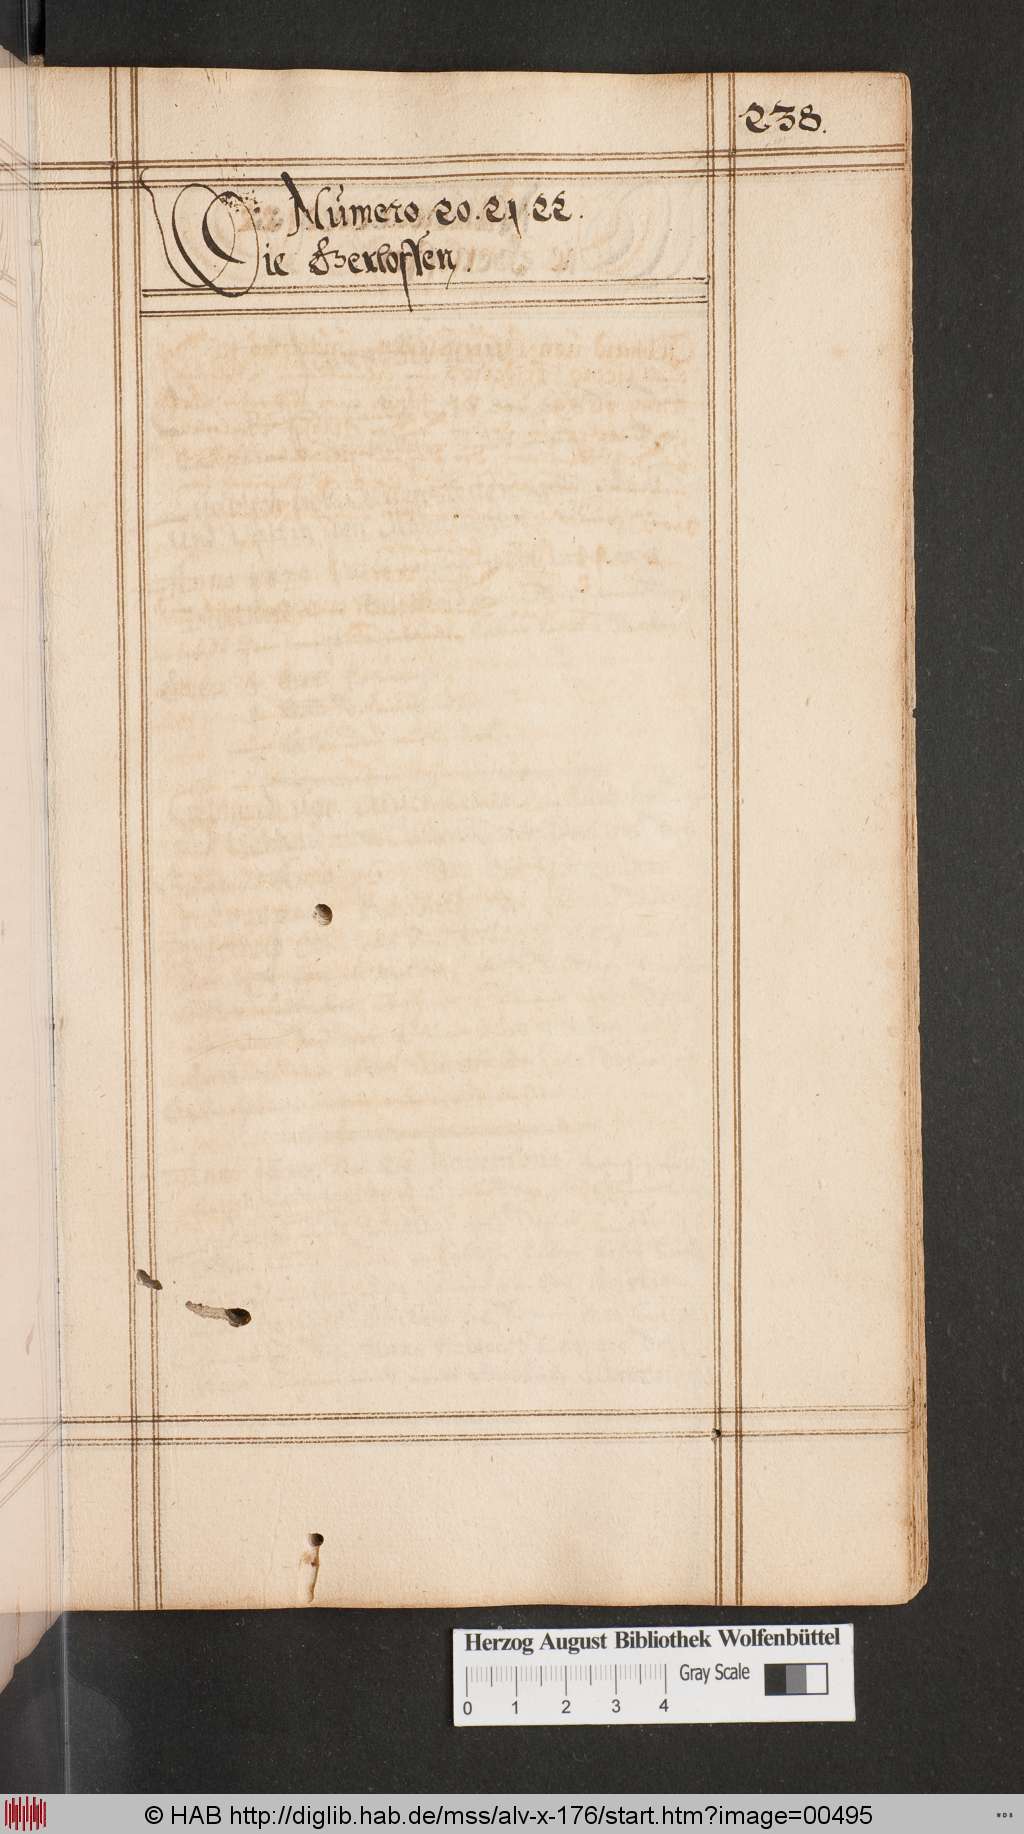 238.
Numero 20. 21 22.
Die Gerloffsen.
Herzog August Bibliothek Wolfenbüttel
Gray Scale
0 1 2 3 4
© HAB http://diglib.hab.de/mss/alv-x-176/start.htm?image=00495